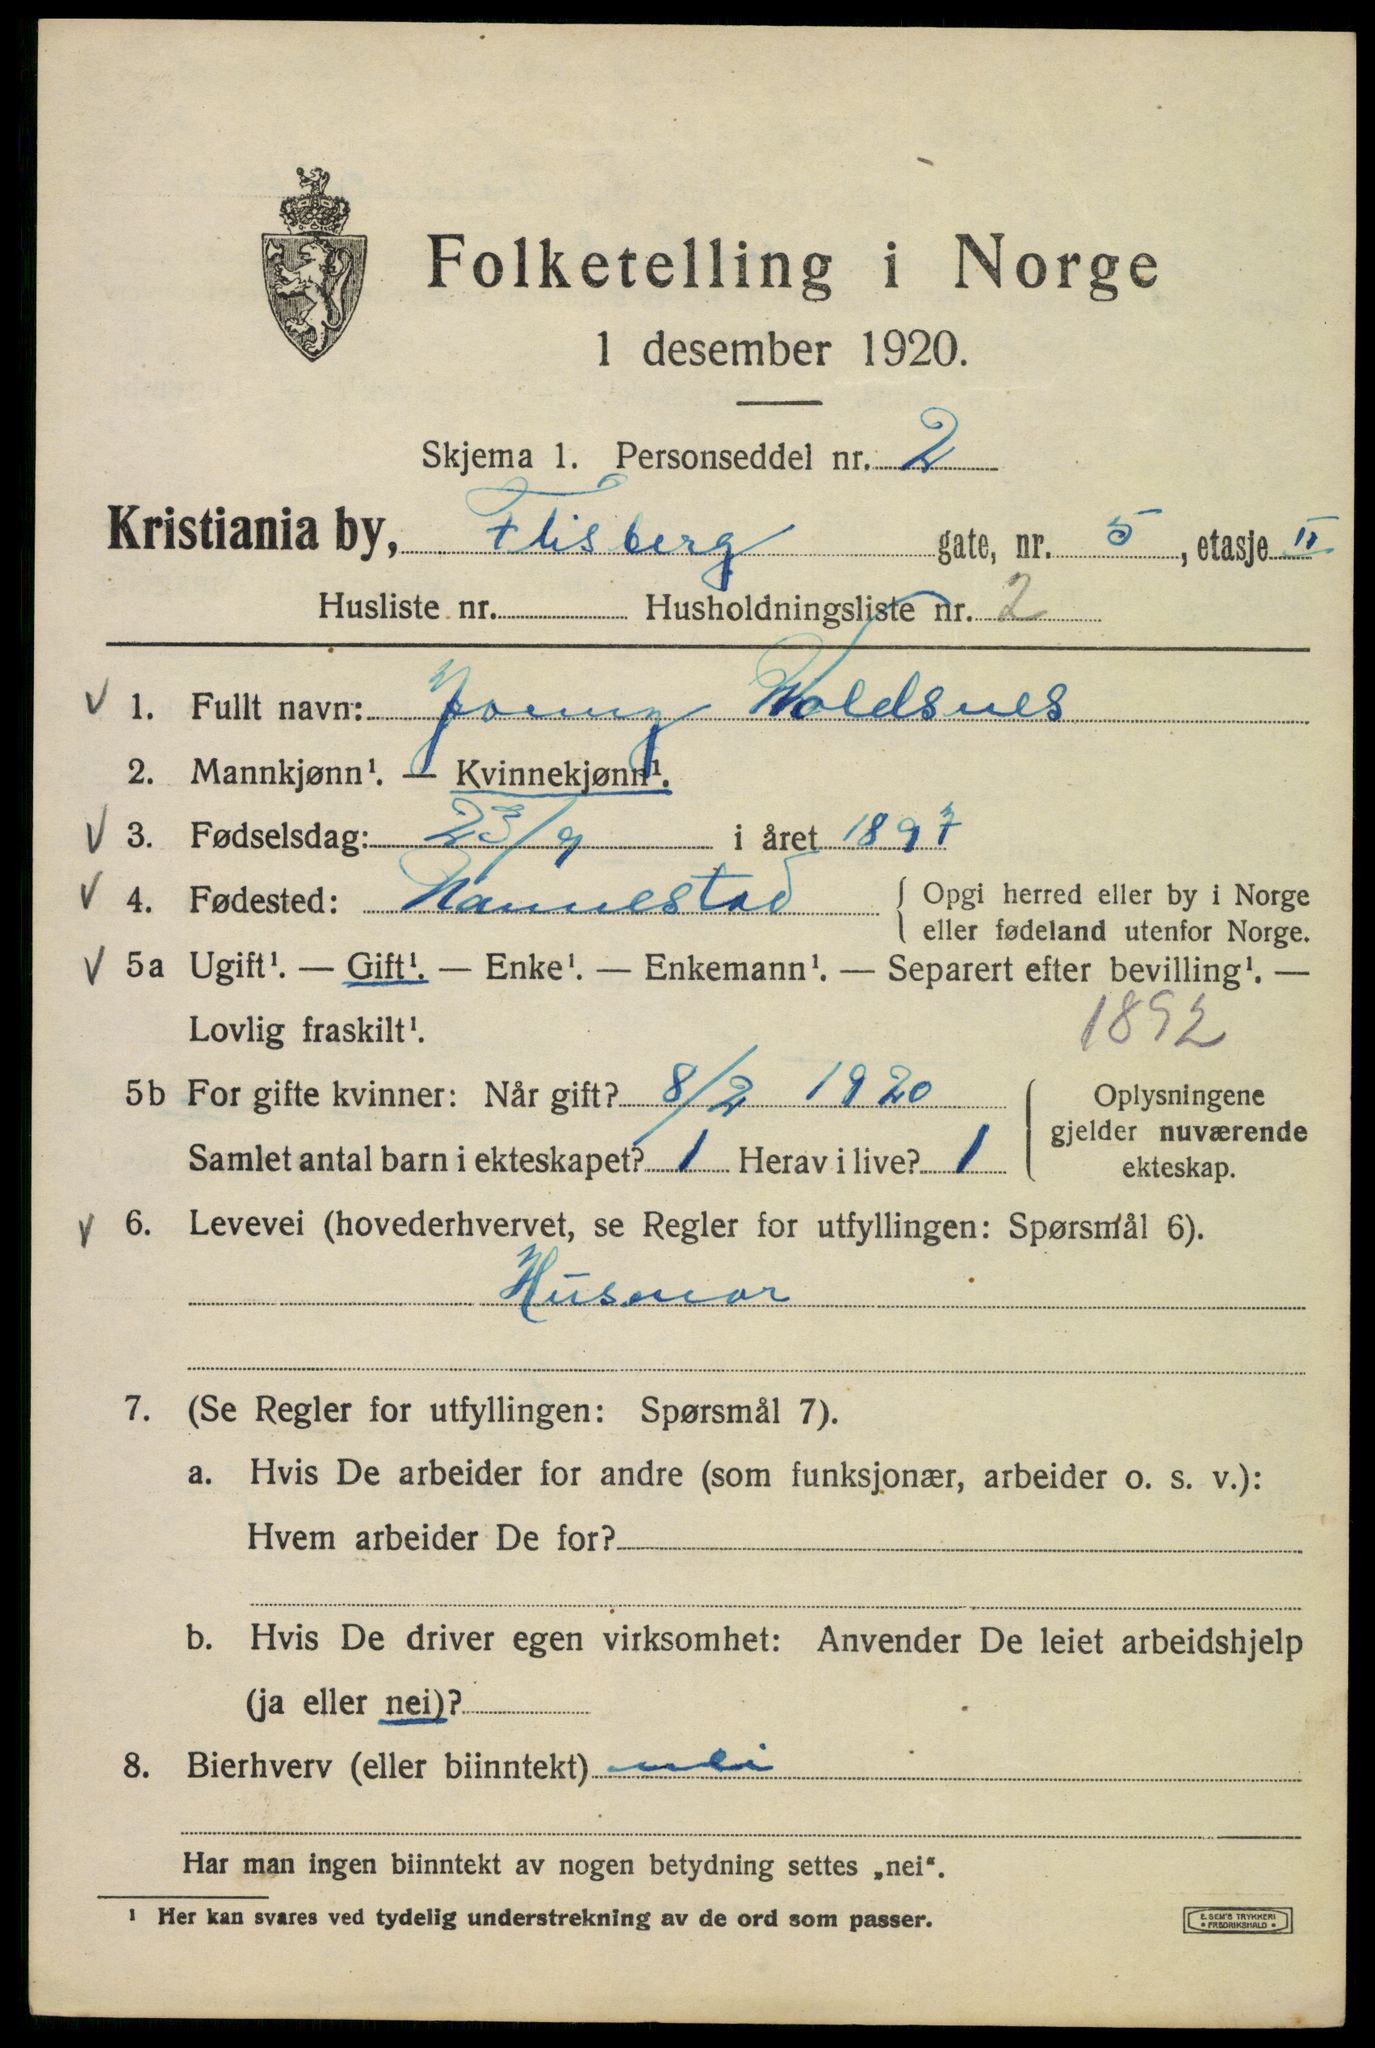 Folketelling i Norge
1 desember 1920.
Skjema 1. Personseddel nr. 2
Kristiania by, Flisberg gate, nr. 5, etasje II
Husliste nr. Husholdningsliste nr. 2
1. Fullt navn: Woldsnes
2. Mannkjønn¹. — Kvinnekjønn¹.
3. Fødselsdag: 23/9 i året 1897
4. Fødested: Nannestad { Opgi herred eller by i Norge
eller fødeland utenfor Norge.
5a Ugift¹. — Gift¹. — Enke¹. — Enkemann¹. — Separert efter bevilling¹. —
Lovlig fraskilt¹. 1892
5b For gifte kvinner: Når gift? 8/2 1920
Samlet antal barn i ekteskapet? 1 Herav i live? 1
Oplysningene
gjelder nuværende
ekteskap.
6. Levevei (hovederhvervet, se Regler for utfyllingen: Spørsmål 6).
Husmor
7. (Se Regler for utfyllingen: Spørsmål 7).
a. Hvis De arbeider for andre (som funksjonær, arbeider o. s. v.):
Hvem arbeider De for?
b. Hvis De driver egen virksomhet: Anvender De leiet arbeidshjelp
(ja eller nei)?
8. Bierhverv (eller biinntekt) nei
Har man ingen biinntekt av nogen betydning settes „nei“.
¹ Her kan svares ved tydelig understrekning av de ord som passer.
E. SEM'S TRYKKERI
• FREDRIKSHALD •